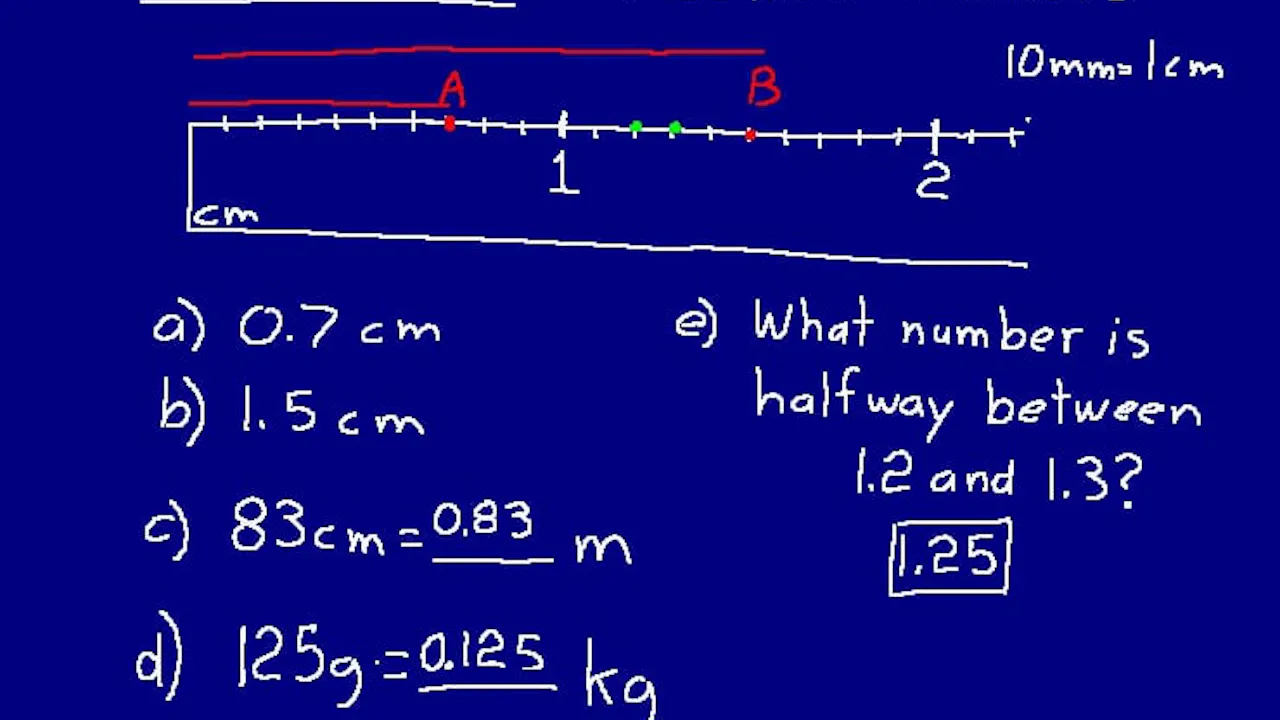 10mm=1cm
A
B
1
2
cm
a) 0.7 cm
b) 1.5 cm
c) 83cm = 0.83 m
d) 125g = 0.125 kg
e) What number is
halfway between
1.2 and 1.3?
1.25